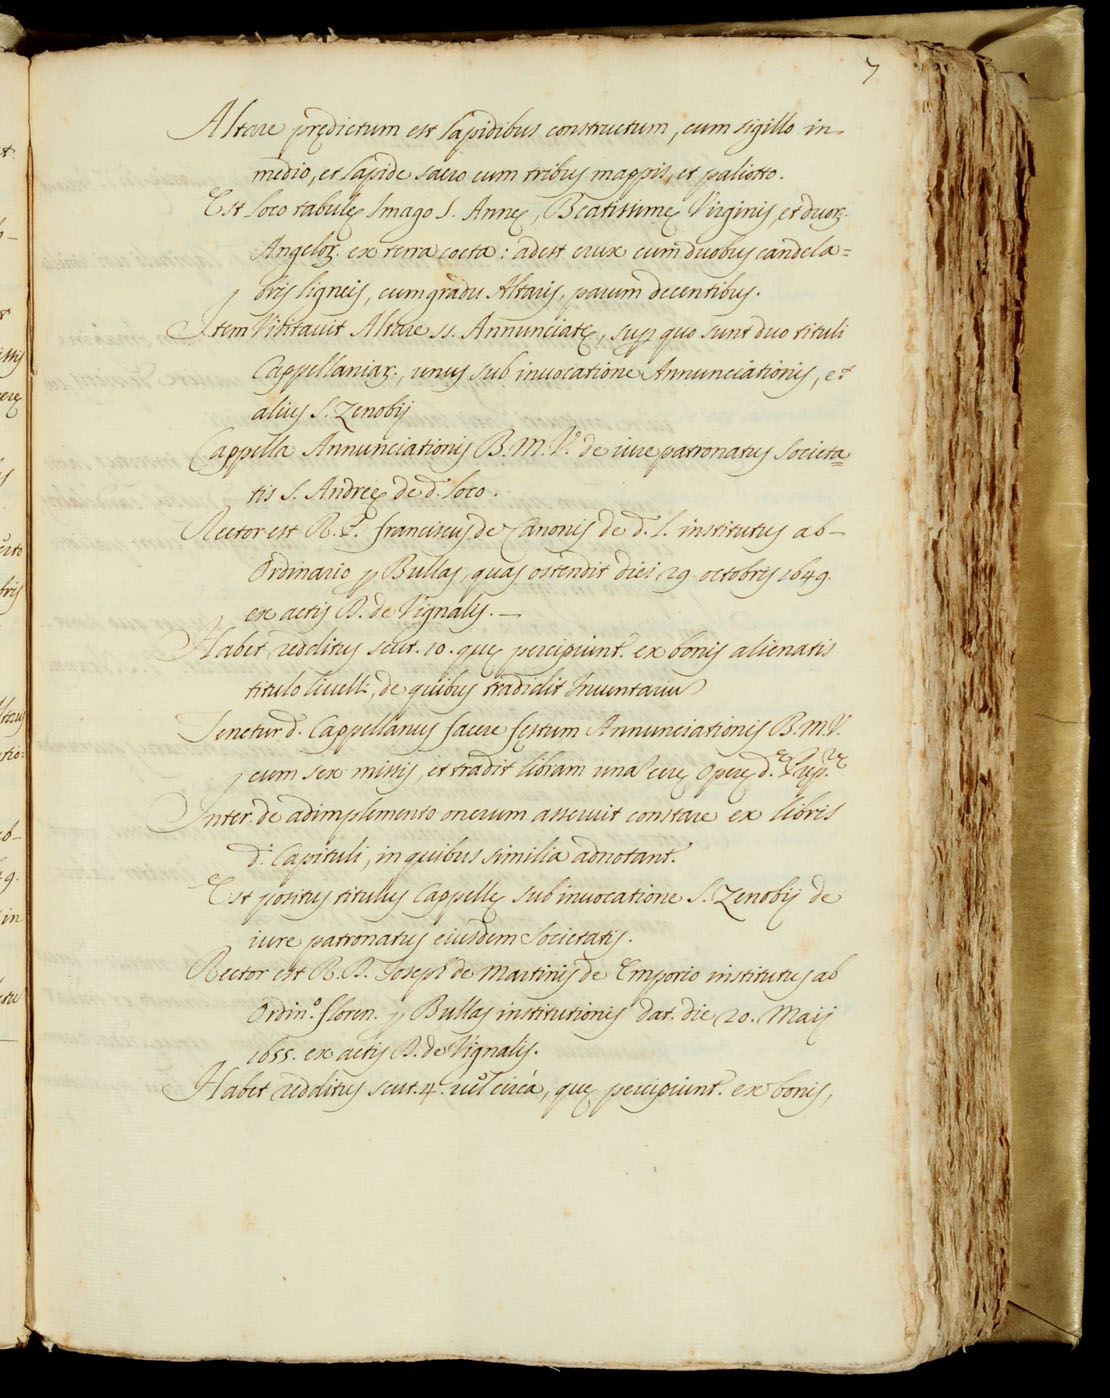 7
Altare prędictum est lapidibus constructum, cum sigillo in
medio, et lapide sacro cum tribus mappis, et paliotto.
Est loco tabulę Imago S. Annę, Beatissimę Virginis, et duoꝝ.
Angeloꝝ. ex terra cocta: adest crux cum duobus candela=
bris ligneis, cum gradu Altaris, parum decentibus.
Item Visitavit Altare ss. Annunciatę, sup quo sunt duo tituli
Cappellaniaꝝ., unus sub invocatione Annunciationis, et
alius S. Zenobij
Cappella Annunciationis B. M. V. de iure patronatus Societa=
tis S. Andreę de d. loco.
Rector est R. P. Franciscus de Canonis de d. l. institutus ab
Ordinario p Bullas, quas ostendit diei 29. octobris 1649.
ex actis B. de Vignalis. —
Habet redditus scut. 10. quę percipiunt. ex bonis alienatis
titulo livelli, de quibus tradidit Inventariu
Tenetur d. Cappellanus facere festum Annunciationis B. M. V.
cum sex missis, et tradit libram una cerę Operę d.
Inter. de adimplemento onerum asseruit constare ex libris
d. Capituli, in quibus similia adnotant.
Est positus titulus Cappellę sub invocatione S. Zenobij de
iure patronatus eiusdem Societatis.
Rector est R. D. Joseph de Martinis de Emporio institutus ab
Ordin.º floren. p Bullas institutionis dat. die 20. Maij
1655. ex actis B. de Vignalis.
Habet redditus scut. 4. vel circa, quę percipiunt. ex bonis,